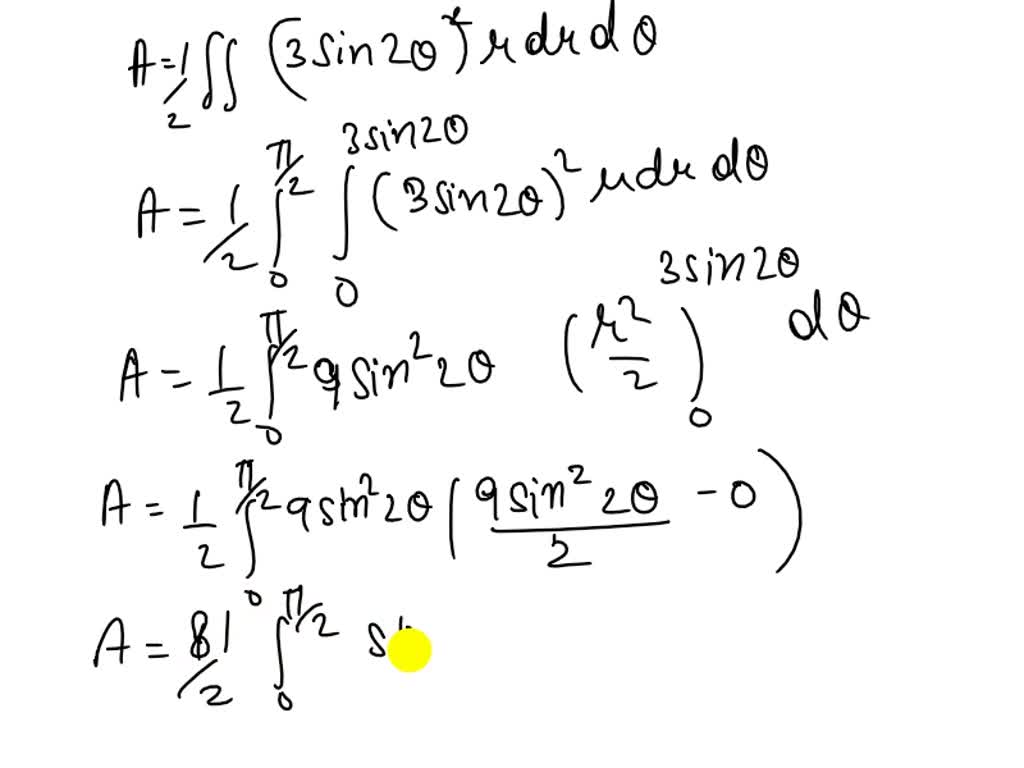 A=1/2 ∬ (3sin2θ)² r dr dθ
A = 1/2 ∫₀^{π/2} ∫₀^{3sin2θ} (3sin2θ)² r dr dθ
A = 1/2 ∫₀^{π/2} 9sin²2θ (r²/2)₀^{3sin2θ} dθ
A = 1/2 ∫₀^{π/2} 9sin²2θ (9sin²2θ/2 - 0)
A = 81/2 ∫₀^{π/2}